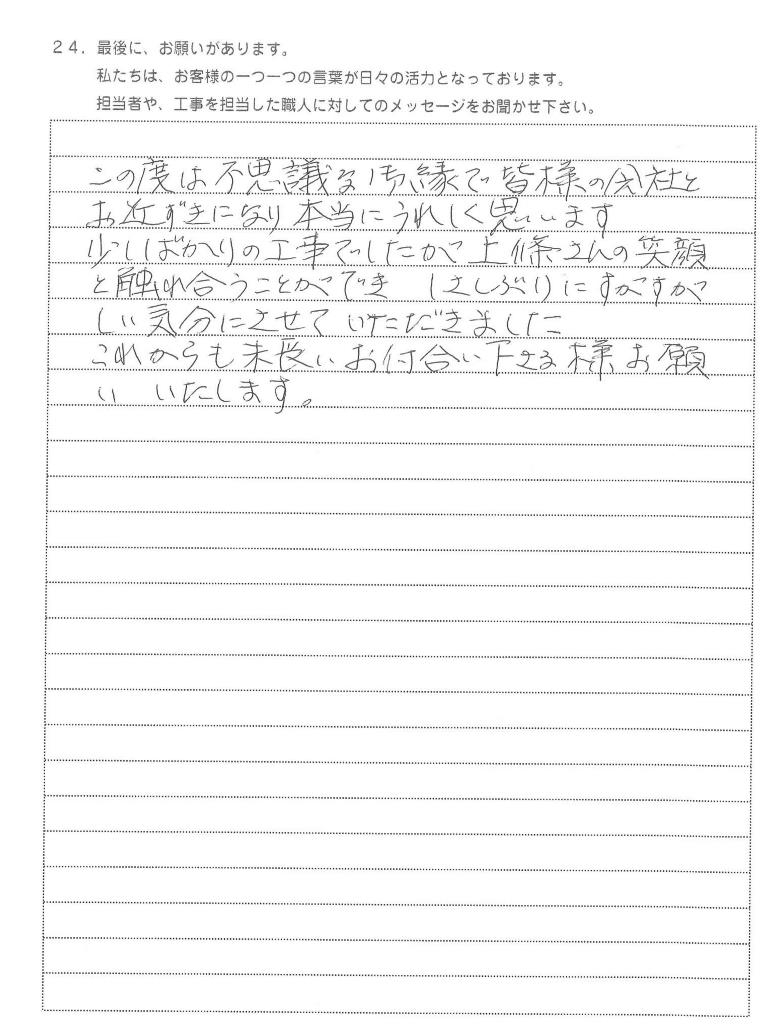 24. 最後に、お願いがあります。
私たちは、お客様の一つ一つの言葉が日々の活力となっております。
担当者や、工事を担当した職人に対してのメッセージをお聞かせ下さい。
この度は不思議なご縁で皆様の会社と
お近ずきになり本当にうれしく思います
少しばかりの工事でしたが上條さんの笑顔
と触れ合うことができ ひさしぶりにすがすが
しい気分にさせていただきました
これからも末長いお付合い下さる様お願
い いたします。